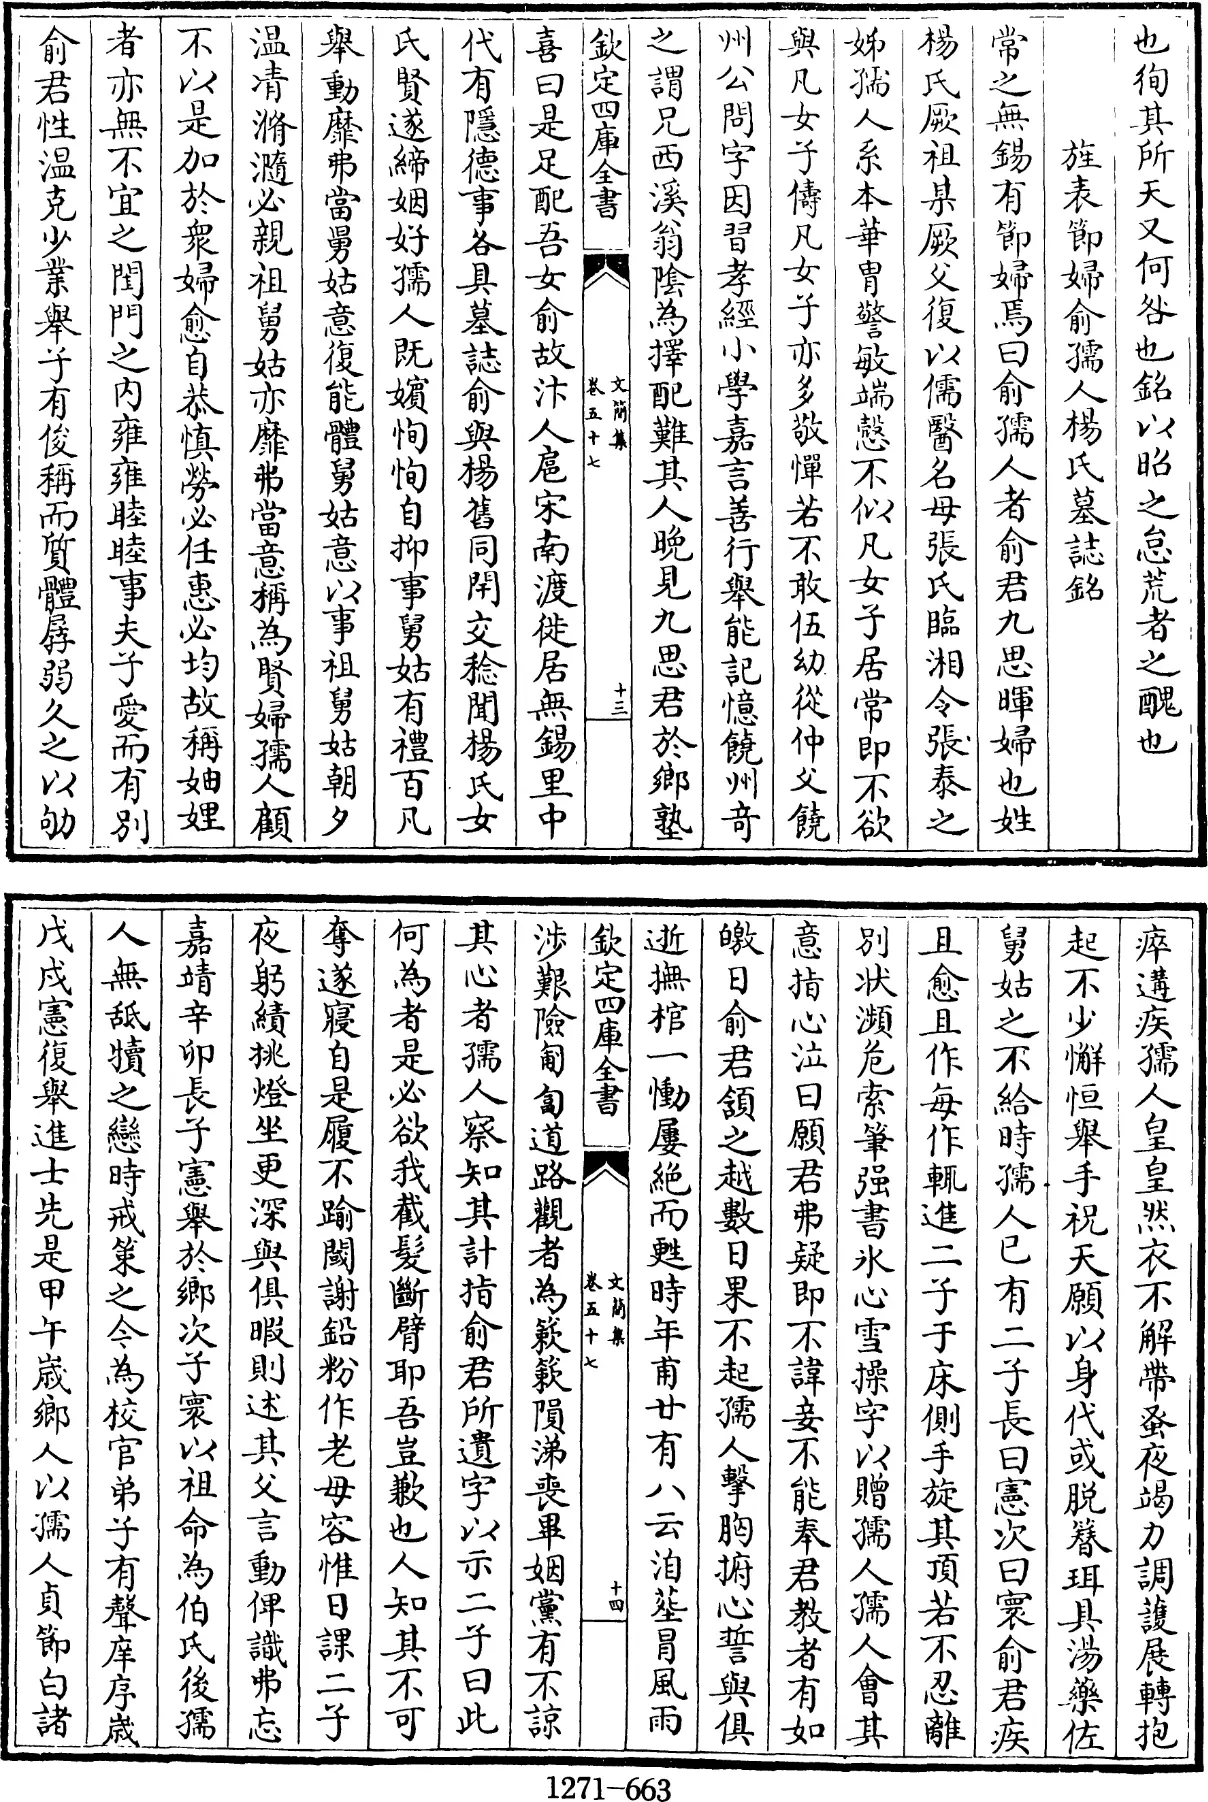 也徇其所天又何咎也銘以昭之怠荒者之醜也
旌表節婦俞孺人楊氏墓誌銘
常之無錫有節婦焉曰俞孺人者俞君九思暉婦也姓
楊氏厥祖某厥父復以儒醫名母張氏臨湘令張泰之
姊孺人系本華冑警敏端慤不似凡女子居常即不欲
與凡女子儔凡女子亦多敬憚若不敢伍幼從仲父饒
州公問字因習孝經小學嘉言善行舉能記憶饒州奇
之謂兄西溪翁陰為擇配難其人晚見九思君於鄉塾
欽定四庫全書
文簡集
卷五十七
十三
喜曰是足配吾女俞故汴人扈宋南渡徙居無錫里中
代有隱德事各具墓誌俞與楊舊同閈交稔聞楊氏女
氏賢遂締姻好孺人既嬪恂恂自抑事舅姑有禮百凡
舉動靡弗當舅姑意復能體舅姑意以事祖舅姑朝夕
温凊滫瀡必親祖舅姑亦靡弗當意稱為賢婦孺人顧
不以是加於衆婦愈自恭慎勞必任惠必均故稱妯娌
者亦無不宜之閨門之内雍雍睦睦事夫子愛而有别
俞君性温克少業舉子有俊稱而質體孱弱久之以劬
瘁遘疾孺人皇皇然衣不解帶蚤夜竭力調護展轉抱
起不少懈恒舉手祝天願以身代或脱簪珥具湯藥佐
舅姑之不給時孺人已有二子長曰憲次曰寰俞君疾
且愈且作每作輒進二子于床側手旋其頂若不忍離
别状瀕危索筆强書氷心雪操字以贈孺人孺人會其
意指心泣曰願君弗疑即不諱妾不能奉君教者有如
皦日俞君頷之越數日果不起孺人擊胸捬心誓與俱
逝撫棺一慟屢絶而甦時年甫廿有八云洎塟冐風雨
欽定四庫全書
文簡集
卷五十七
十四
涉艱險匍匐道路觀者為簌簌隕涕喪畢姻黨有不諒
其心者孺人察知其計指俞君所遺字以示二子曰此
何為者是必欲我截髪斷臂耶吾豈歉也人知其不可
奪遂寢自是履不踰閾謝鉛粉作老母容惟日課二子
夜躬績挑燈坐更深與俱暇則述其父言動俾識弗忘
嘉靖辛卯長子憲舉於鄉次子寰以祖命為伯氏後孺
人無舐犢之戀時戒策之今為校官弟子有聲庠序嵗
戊戌憲復舉進士先是甲午嵗鄉人以孺人貞節白諸
1271-663